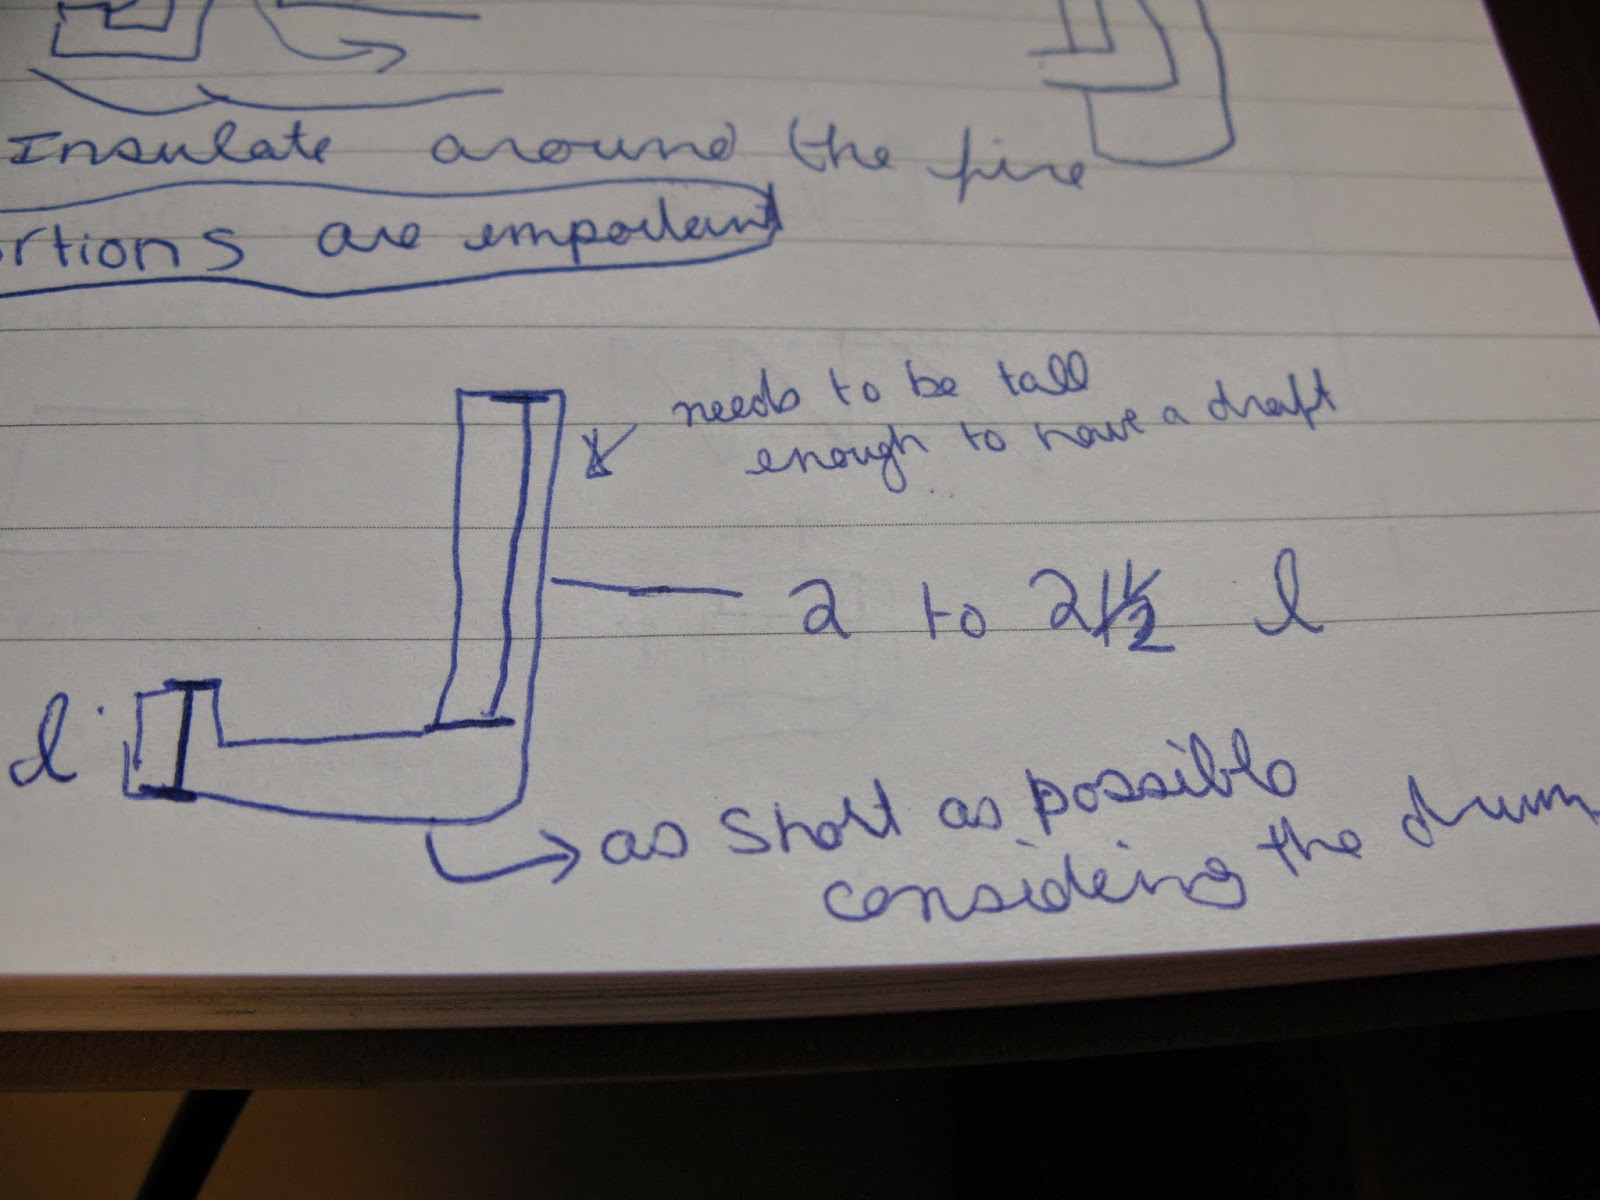 Insulate around the fire
ortions are important
needs to be tall
enough to have a draft
2 to 2 1/2 l
l
as short as possible
considering the drum